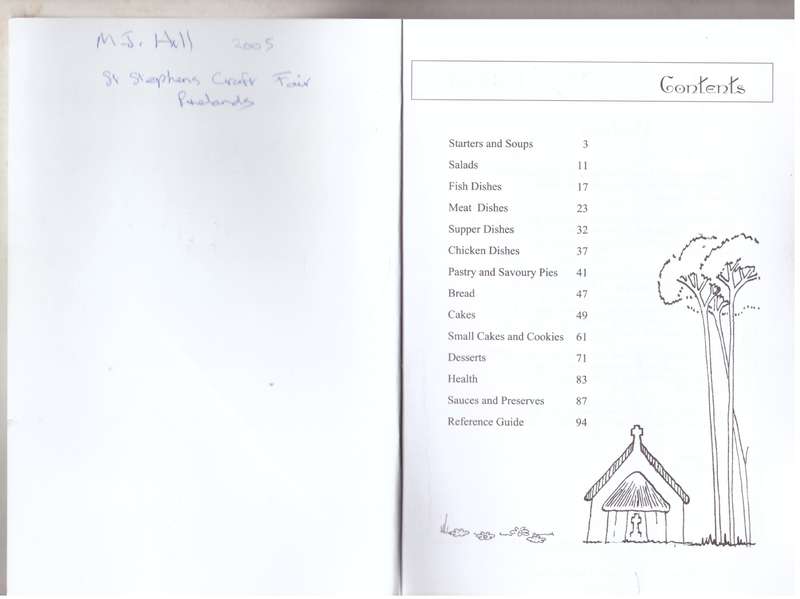 M.J. Hill 2005
St Stephens Craft Fair
Pinelands
Contents
Starters and Soups 3
Salads 11
Fish Dishes 17
Meat Dishes 23
Supper Dishes 32
Chicken Dishes 37
Pastry and Savoury Pies 41
Bread 47
Cakes 49
Small Cakes and Cookies 61
Desserts 71
Health 83
Sauces and Preserves 87
Reference Guide 94